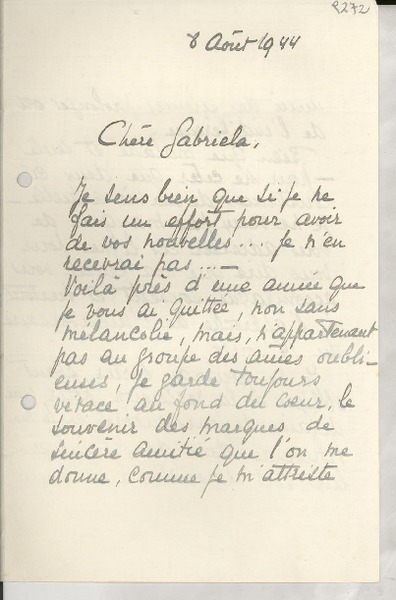 9272
8 Août 1944
Chère Gabriela,
Je sens bien que si je ne
fais un effort pour avoir
de vos nouvelles... je n'en
recevrai pas...—
Voilà près d'une année que
je vous ai quittée, non sans
mélancolie, mais, n'appartenant
pas au groupe des amies oubli-
euses, je garde toujours
vivace au fond du coeur, le
souvenir des marques de
sincère amitié que l'on me
donne, comme je m'attriste